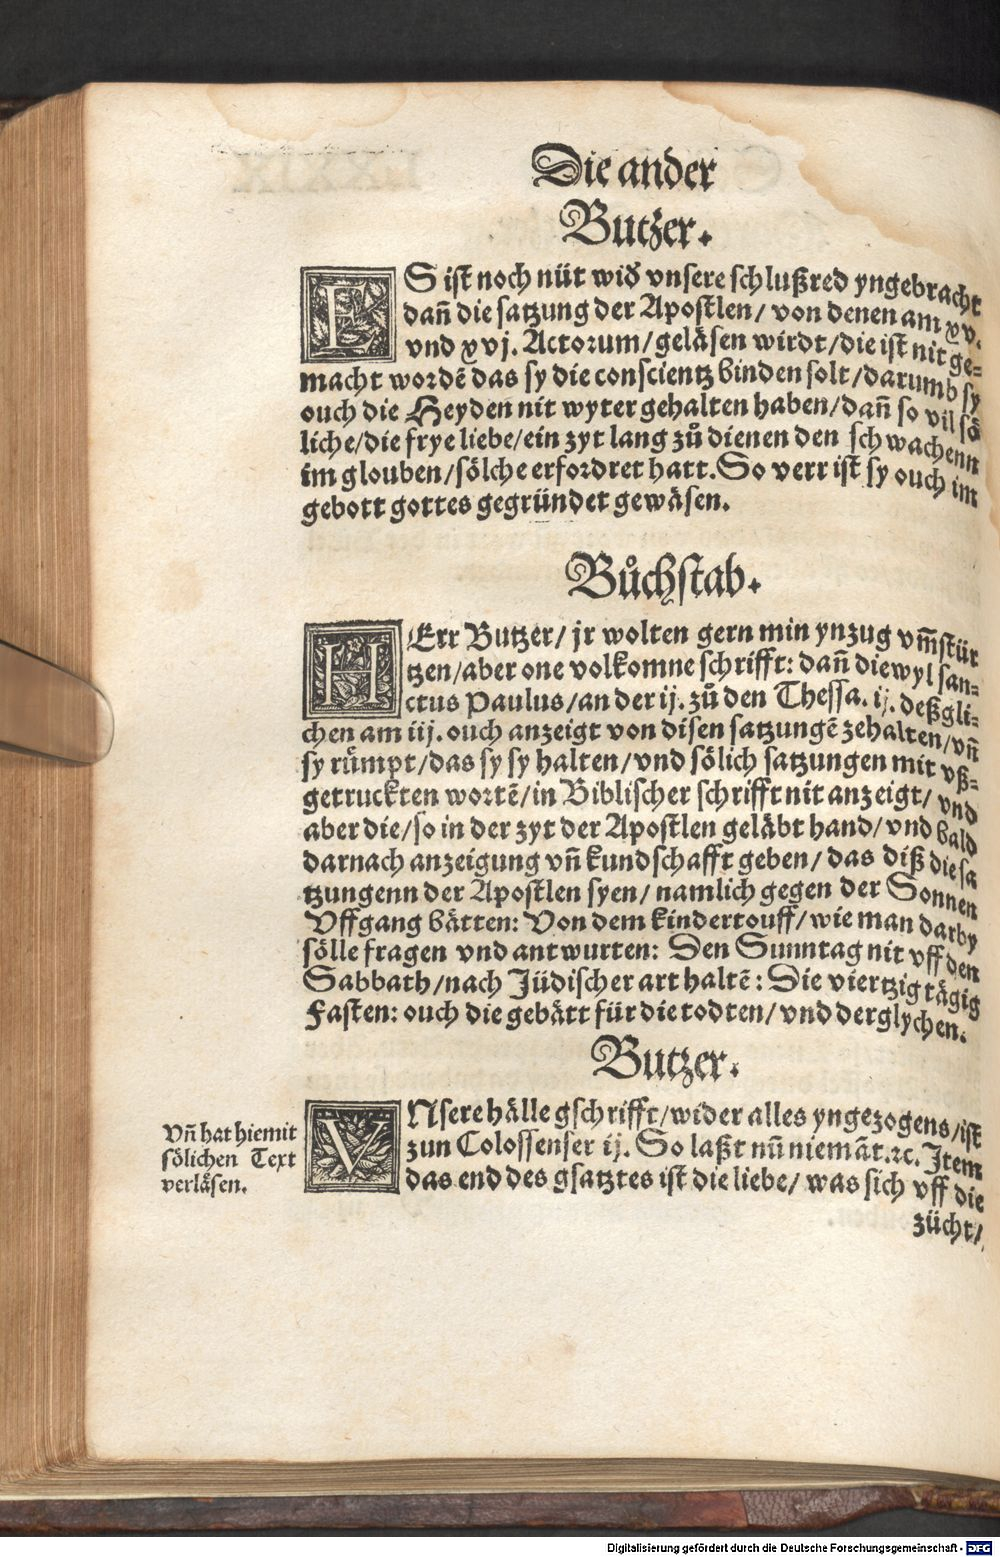 Die ander
Butzer.
ES ist noch nüt wid̕ vnsere schlußred yngebracht
dañ die satzung der Apostlen/ von denen am xv.
vnd xvj. Actorum/geläsen wirdt/die ist nit ge-
macht wordē das sy die conscientz binden solt/darumb sy
ouch die Heyden nit wyter gehalten haben/dañ so vil sö
liche/die frye liebe/ein zyt lang zů dienen den schwachenn
im glouben/sölche erfordret hatt. So verr ist sy ouch im
gebott gottes gegründet gewäsen.
Bůchstab.
HErr Butzer/ jr wolten gern min ynzug vm̄stür
tzen/aber one volkomne schrifft: dañ diewyl san-
ctus Paulus/an der ij. zů den Thessa. ij. deßgli-
chen am iij. ouch anzeigt von disen satzungē zehalten/vñ
sy růmpt/das sy sy halten/vnd sölich satzungen mit vß-
getruckten wortē/in Biblischer schrifft nit anzeigt/ vnd
aber die/so in der zyt der Apostlen geläbt hand/vnd bald
darnach anzeigung vñ kundschafft geben/ das diß die sa
tzungenn der Apostlen syen/ namlich gegen der Sonnen
Vffgang bätten: Von dem kindertouff/wie man darby
sölle fragen vnd antwurten: Den Sunntag nit vff den
Sabbath/nach Jüdischer art haltē: Die viertzig tägig
Fasten: ouch die gebätt für die todten/vnd derglychen.
Butzer.
Vñ hat hiemit
sölichen Text
verläsen.
VNsere hälle gschrifft/wider alles yngezogens/ist
zun Colossenser ij. So laßt nū niemāt.ꝛc. Item
das end des gsatztes ist die liebe/ was sich vff die
zücht/
Digitalisierung gefördert durch die Deutsche Forschungsgemeinschaft - DFG